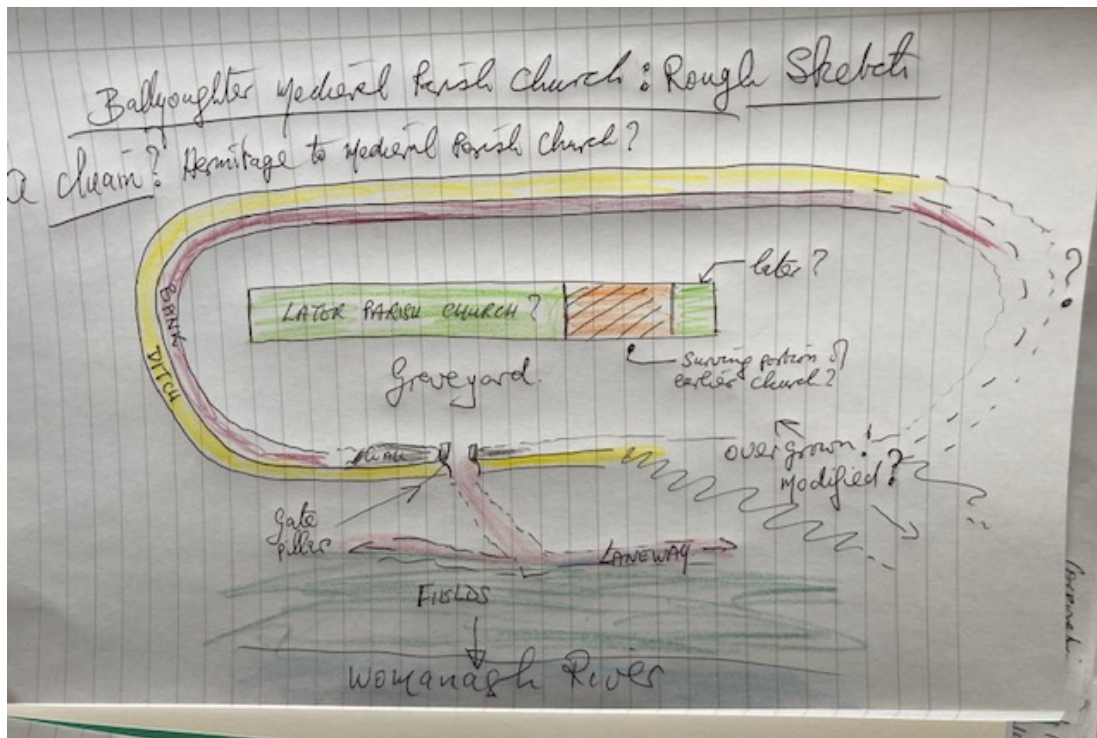 Ballyoughter Medieval Parish Church : Rough Sketch
a cluain? Hermitage to Medieval Parish Church?
later?
?
LATER PARISH CHURCH?
BANK
DITCH
Surviving portion of
earlier church?
Graveyard.
WALL
overgrown!
modified?
Gate
pillar
LANEWAY
FIELDS
Womanagh River